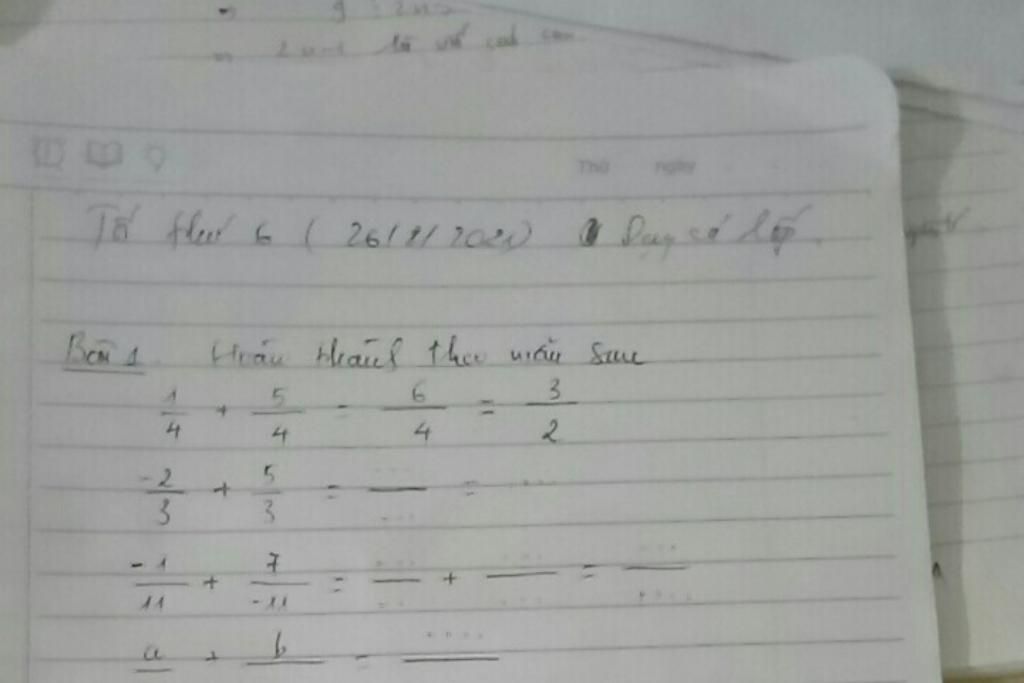 Thứ ngày
Tố thứ 6 ( 26/2/2021) Dạy cả lớp
Bài 1. Hoàn thành theo mẫu sau
1/4 + 5/4 = 6/4 = 3/2
-2/3 + 5/3 = .../... = ...
-1/11 + 7/-11 = .../... + .../... = .../...
a + b = ....